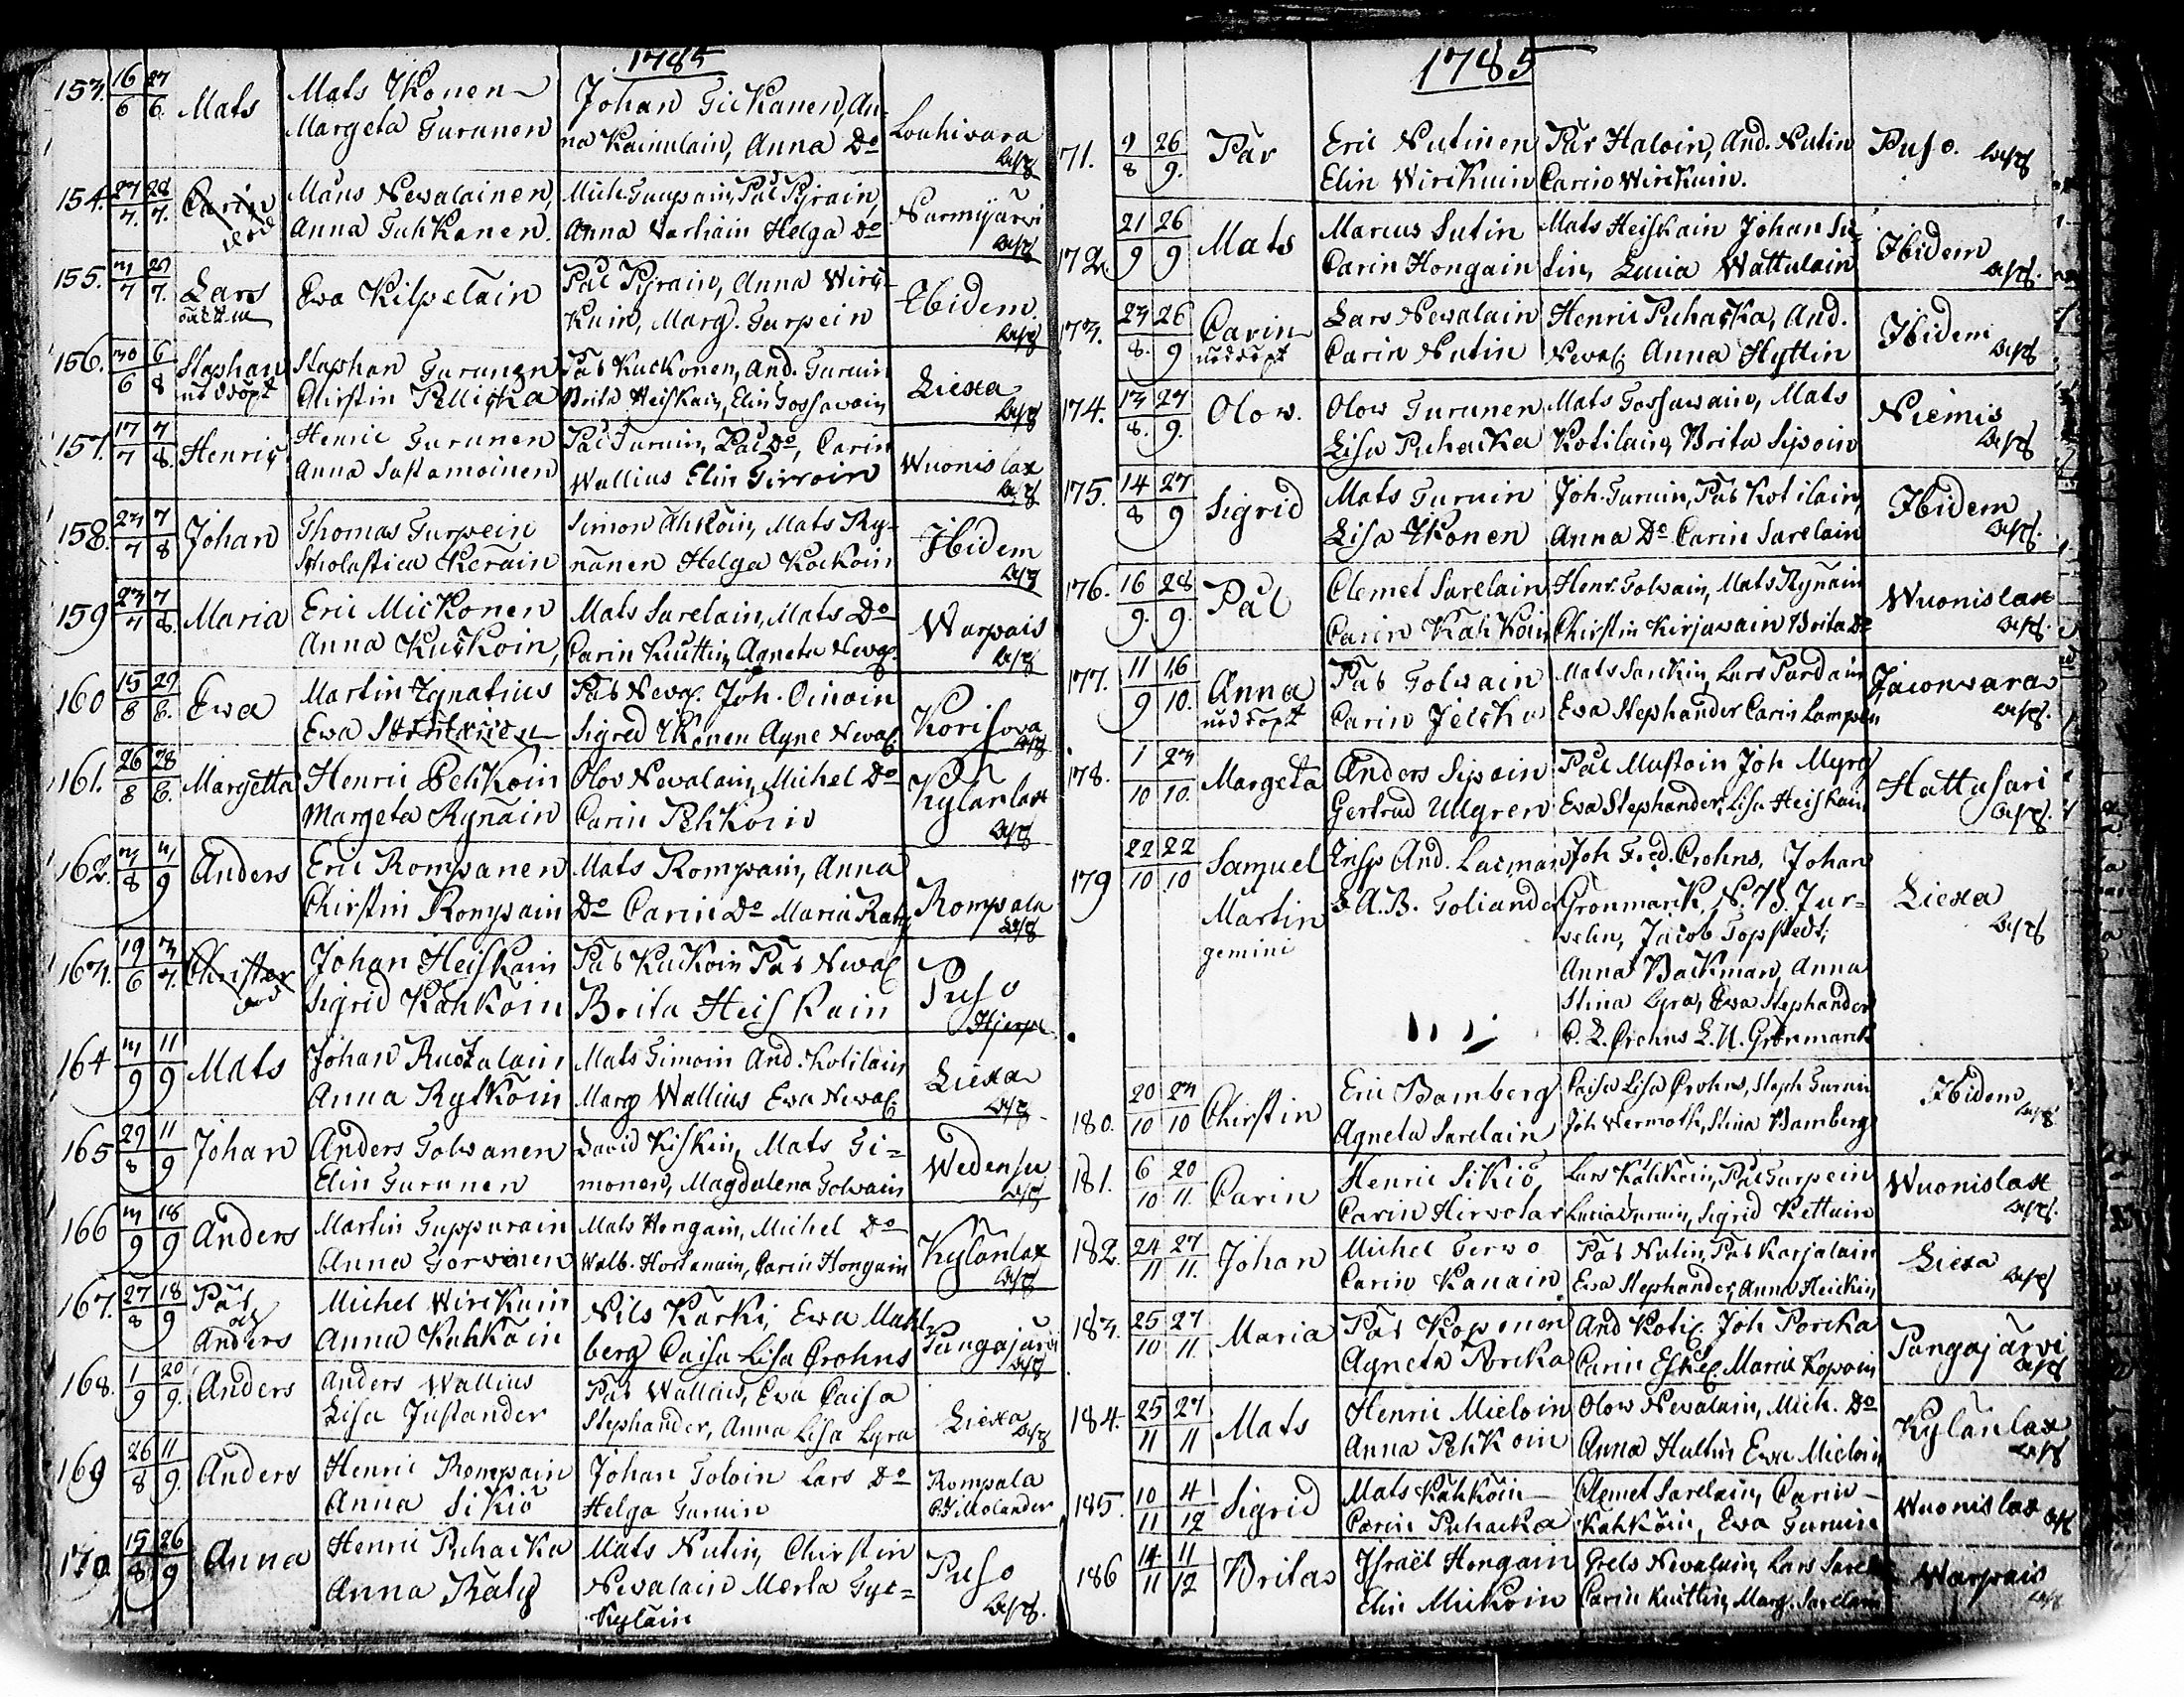 1785
153. 16/6 27/6. Mats
Mats Ikonen
Margeta Turunen
Johan Tickanen, An-
na Kainulain, Anna Do
Louhivara
154. 27/7. 28/7. Carin
död
Måns Nevalainen,
Anna Tuhkanen.
Mich. Taupain, Pål Pyrain,
Anna Variain Helga Do
Nurmijärvi
155. 3/7 29/7. Lars
oächta
Ewa Kilpelain
Pål Pyrain, Anna Wire-
Kuin, Marg. Turpein
Ibidem.
156. 30/6 6/8 Staphan
nöddöpt
Staphan Turunen
Chirstin Pellicka
Påb Kuckonen, And. Turuin
Brita Heiskain, Elin Tossavain
Liexa
157. 17/7 7/8. Henric
Henric Turunen
Anna Sastamoinen
Pål Turuin, Pål Do, Carin
Wallius Elin Tirroin
Wuonislax
158. 23/7 7/8 Johan
Thomas Turpein
Scholastica Kerain
Simon Ahkoin, Mats Ry-
nänen Helga Kockoin
Ibidem
159 23/7 7/8. Maria
Eric Mickonen
Anna Kuckoin,
Mats Sarelain, Mats Do
Carin Kuittin, Agneta Neval.
Warpais
160 15/8 29/8. Ewa
Martin Ignatius
Ewa
Påb Neval. Joh. Oinoin
Sigred Ikonen Agne Neval.
Korisova
161. 26/8 28/8. Margetta
Henric Pehkoin
Margeta Rynäin
Olov Nevalain, Michel Do
Carin Pehkoin
Kylänlax
162. 3/8 3/9 Anders
Eric Rompanen
Chirstin Rompain
Mats Rompain, Anna
Do Carin Do Maria Raty
Rompala
163. 19/6 3/7. Christer
död
Johan Heiskain
Sigrid Kahkoin
Påb Kuckoin Påb Neval
Brita Heiskain
Puso
Hjerpe
164 3/9 11/9 Mats
Johan Ruotalain
Anna Rytkoin
Mats Timoin And. Kotilain
Marg Wallius Ewa Neval.
Liexa
165 29/8 11/9 Johan
Anders Tolvanen
Elin Turunen
David Kiskin, Mats Ti=
monen, Magdalena Tolvain
Wedensu
166 3/9 18/9 Anders
Martin Tuppurain
Anna Torvinen
Mats Hongain, Michel Do
Walb. Hortanain, Carin Hongain
Kylänlax
167. 27/8 18/9 Pål
och
Anders
Michel Wirckuin
Anna Kahkoin
Nils Karki, Ewa Mahl-
berg Caisa Lisa Crohns
Pangajärvi
168. 1/9 20/9. Anders
Anders Wallius
Lisa Justander
Påb Wallius, Ewa Caisa
Stephander, Anna Lisa Lyra
Liexa
169 26/8 11/9. Anders
Henric Rompain
Anna Sikiö
Johan Toloin Lars Do
Helga Turuin
Rompala
Molander
170. 15/8 26/9 Anna
Henric Puhacka
Anna Raty
Mats Nutin, Chirstin
Nevalain Merta Tyc=
kyläin
Puso
1785
71. 9/8 26/9. Pär
Eric Nutinen
Elin Wirckuin
Pär Haloin, And. Nutin
Carin Wirckuin.
Puso.
172. 21/9 26/9 Mats
Marcus Sutin
Carin Hongain
Mats Heiskain Johan Su-
tin, Lucia Wattulain
Ibidem
173. 23/8. 26/9 Carin
nöddöpt
Lars Nevalain
Carin Nutin
Henric Puhacka, And.
Neval. Anna Hyttin
Ibidem
174. 13/8. 27/9. Olow.
Olow Turunen
Lisa Puhacka
Mats Tossawain, Mats
Kotilain, Brita Sipoin
Niemis
175. 14/8 27/9 Sigrid
Mats Turuin
Lisa Ikonen
Joh. Turuin, Påb Kotilain,
Anna Do Carin Sarelain
Ibidem
176. 16/9. 28/9. Pål
Clemet Sarelain
Carin Kahkoin
Henr. Tolvain, Mats Rynäin
Chirstin Kirjavain Brita Do
Wuonislax
177. 11/9 16/10. Anna
nöddöpt
Påb Tolvain
Carin Jelcka
Mats Sarckin, Lars Pardain
Ewa Stephander Carin Lampen
Jaconvara
178. 1/10 23/10. Margeta
Anders Sipoin
Gertrud Ullgren
Pål Mustoin Joh Myra
Ewa Stephander, Lisa Heiskain
Hattusari
179 22/10 22/10 Samuel
Martin
gemini
Insp And. Lacman
& A. B. Toliander
Joh Fred. Crohns, Johan
Grönmarck, N. B. Jur=
velin, Jacob Topstedt;
Anna Backman, Anna
Stina Lyra, Ewa Stephander
C. L. Crohns L. U. Grönmarck
Liexa
180. 20/10 23/10 Chirstin
Eric Bamberg
Agneta Sarelain
Caisa Lisa Crohns, Steph Turuin
Joh Wermoth, Stina Bamberg
Ibidem
181. 6/10 20/11. Carin
Henric Sikiö,
Carin Hirvolax
Lars Kahkoin, Pål Turpein
Lucia Turuin, Sigrid Kettuin
Wuonislax
182. 24/11 27/11. Johan
Michel Tervo
Carin Kanain.
Påb Nutin, Påb Karjalain
Ewa Stephander, Anna Heickin
Liexa
183. 25/10 27/11. Maria
Påb Koponen
Agneta Porcka
And Kotil. Joh Porcka
Carin Eskel. Maria Kopoin
Pangajärvi
184. 25/11 27/11 Mats
Henric Mieloin
Anna Pehkoin
Olow Nevalain, Mich. Do
Anna Hultin Ewa Mieloin
Kylänlax
185. 10/11 4/12 Sigrid
Mats Kahkoin
Carin Puhacka
Clemet Sarelain, Carin
Kahkoin, Ewa Turuin
Wuonislax
186 14/11 11/12 Britas
Israël Hongain
Elin Mickoin
Grels Nevalain, Lars Sarel
Carin Kuittin, Marg. Sarelain
Warpais